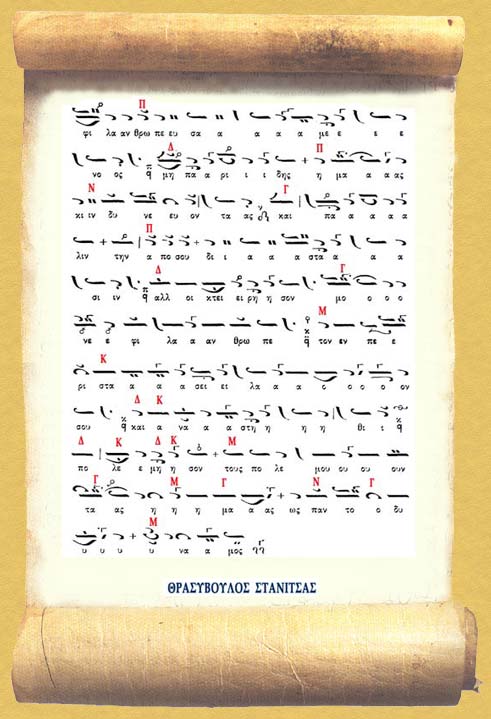 Π
φι λα αν θρω πε ευ σα α α α α με ε ε ε ε
Δ Π
νο ος μη πα α ρι ι ι δης η μα α ας
Ν Γ
κι ιν δυ νε ευ ον τα ας και πα α α ας α
Π
λιν την α πο σου δι ι α α α στα α α α
Δ Γ
σι ιν αλλ οι κτει ει ρη η σον μο ο ο ο
Μ
νε ε φι λα α αν θρω πε τον εν πε ε
Κ
ρι στα α α α σει ει λα α α ο ο ο ο ον
Δ Κ
σου και α να α α στη η η η θι ι
Δ Κ Δ Κ Μ
πο λε ε μη η σον τους πο λε μου ου ου ουν
Γ Μ Γ Ν Γ
τα ας η η η μα α ας ως παν το ο δυ
Μ
υ υ υ υ να α μος
ΘΡΑΣΥΒΟΥΛΟΣ ΣΤΑΝΙΤΣΑΣ